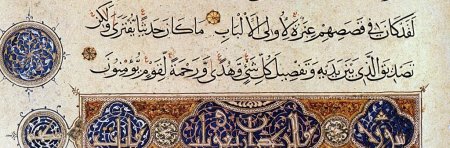 لَقَدْ كَانَ فِي قَصَصِهِمْ عِبْرَةٌ لِأُولِي الْأَلْبَابِ مَا كَانَ حَدِيثًا يُفْتَرَى وَلَكِنْ
تَصْدِيقَ الَّذِي بَيْنَ يَدَيْهِ وَتَفْصِيلَ كُلِّ شَيْءٍ وَهُدًى وَرَحْمَةً لِقَوْمٍ يُؤْمِنُونَ
سورة